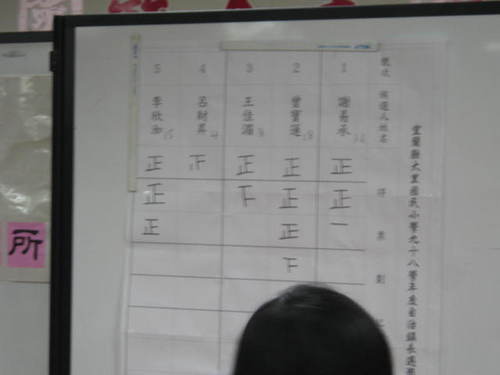 宜蘭縣大里國民小學九十八學年度自治鎮長選
號次
候選人姓名
得票劃
1
謝易承
正
正
一
2
曾寶蓮 18
正
正
正
下
3
王佳湄 8
正
下
4
呂財昇 4
5
李欣如 15
正
正
正
所